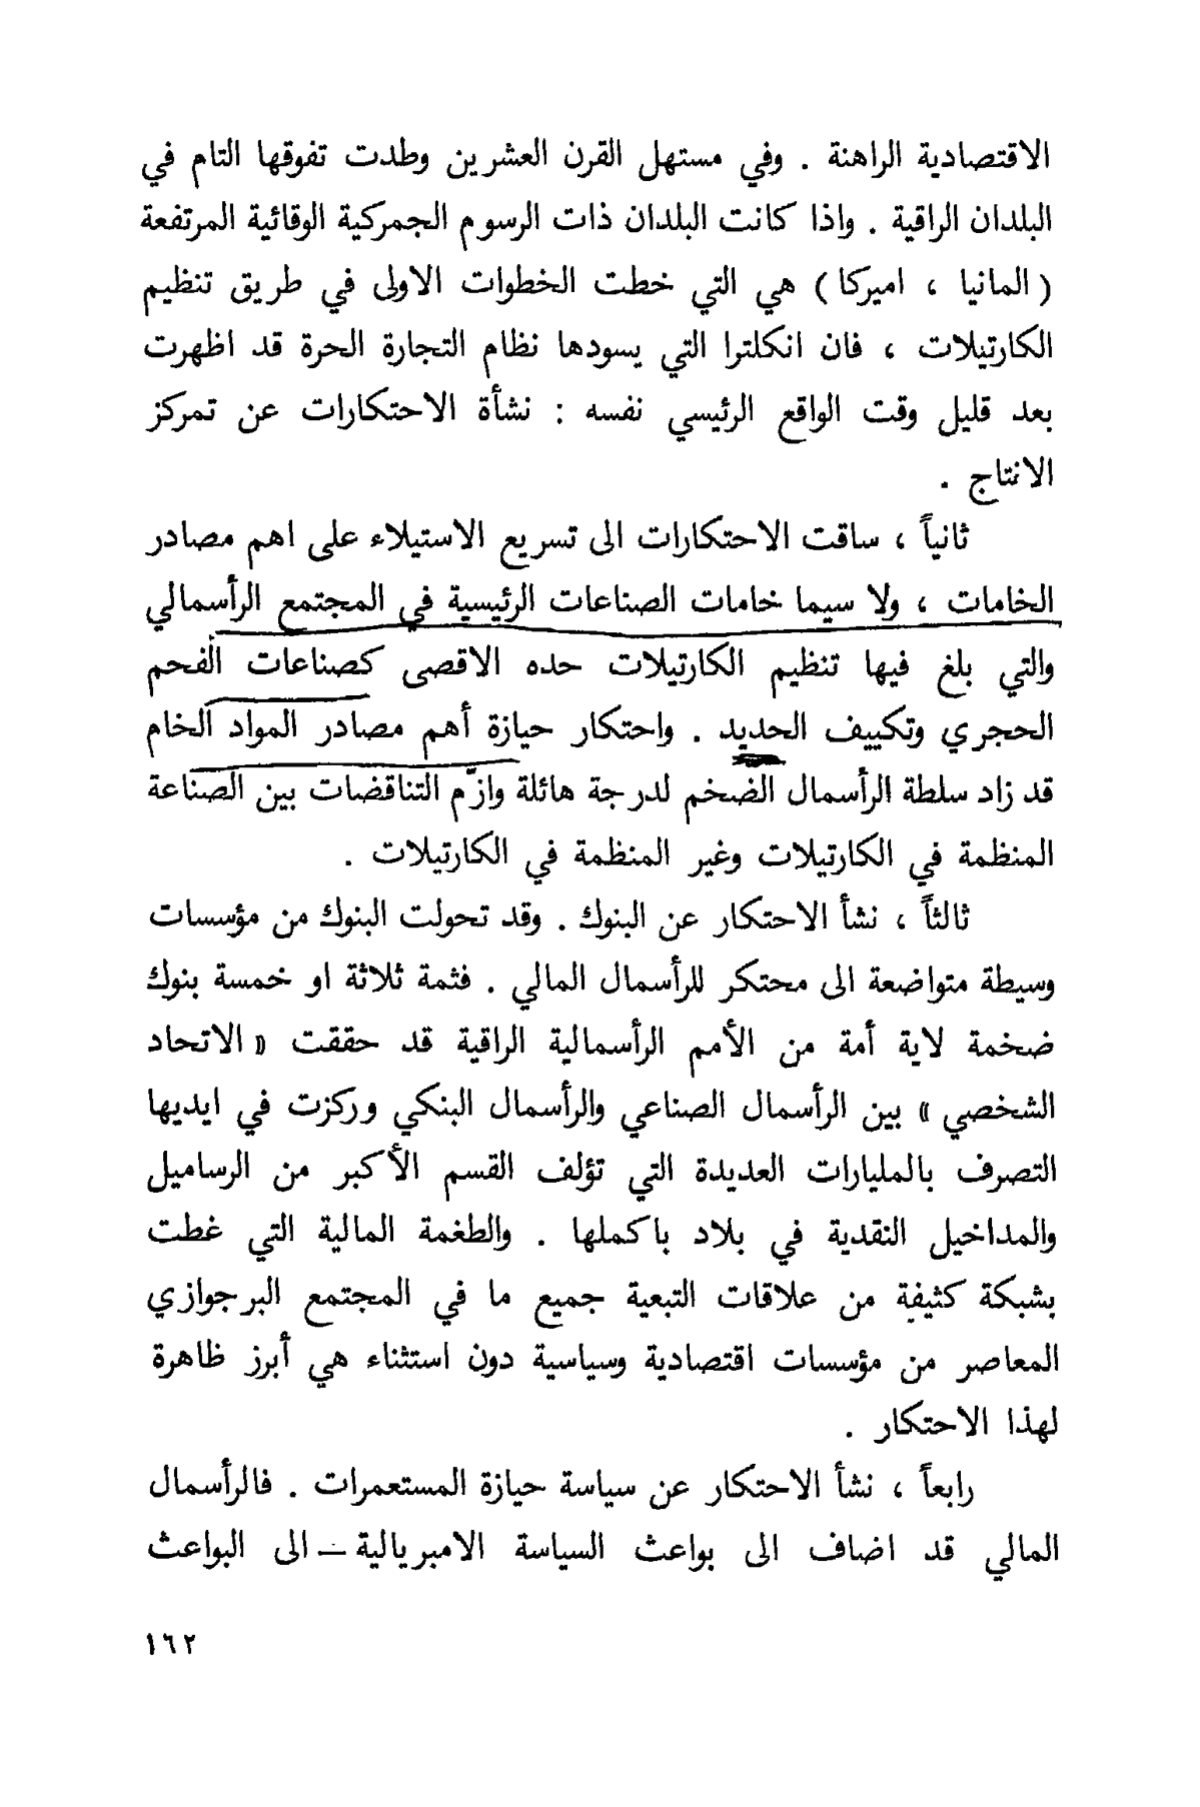 الاقتصادية الراهنة . وفي مستهل القرن العشرين وطدت تفوقها التام في
البلدان الراقية . واذا كانت البلدان ذات الرسوم الجمركية الوقائية المرتفعة
( المانيا ، اميركا ) هي التي خطت الخطوات الاولى في طريق تنظيم
الكارتيلات ، فان انكلترا التي يسودها نظام التجارة الحرة قد اظهرت
بعد قليل وقت الواقع الرئيسي نفسه : نشأة الاحتكارات عن تمركز
الانتاج .
ثانياً ، ساقت الاحتكارات الى تسريع الاستيلاء على اهم مصادر
الخامات ، ولا سيما خامات الصناعات الرئيسية في المجتمع الرأسمالي
والتي بلغ فيها تنظيم الكارتيلات حده الاقصى كصناعات الفحم
الحجري وتكييف الحديد . واحتكار حيازة أهم مصادر المواد الخام
قد زاد سلطة الرأسمال الضخم لدرجة هائلة وازّم التناقضات بين الصناعة
المنظمة في الكارتيلات وغير المنظمة في الكارتيلات .
ثالثاً ، نشأ الاحتكار عن البنوك . وقد تحولت البنوك من مؤسسات
وسيطة متواضعة الى محتكر للرأسمال المالي . فثمة ثلاثة او خمسة بنوك
ضخمة لاية أمة من الأمم الرأسمالية الراقية قد حققت « الاتحاد
الشخصي » بين الرأسمال الصناعي والرأسمال البنكي وركزت في ايديها
التصرف بالمليارات العديدة التي تؤلف القسم الأكبر من الرساميل
والمداخيل النقدية في بلاد باكملها . والطغمة المالية التي غطت
بشبكة كثيفة من علاقات التبعية جميع ما في المجتمع البرجوازي
المعاصر من مؤسسات اقتصادية وسياسية دون استثناء هي أبرز ظاهرة
لهذا الاحتكار .
رابعاً ، نشأ الاحتكار عن سياسة حيازة المستعمرات . فالرأسمال
المالي قد اضاف الى بواعث السياسة الامبريالية – الى البواعث
١٦٢